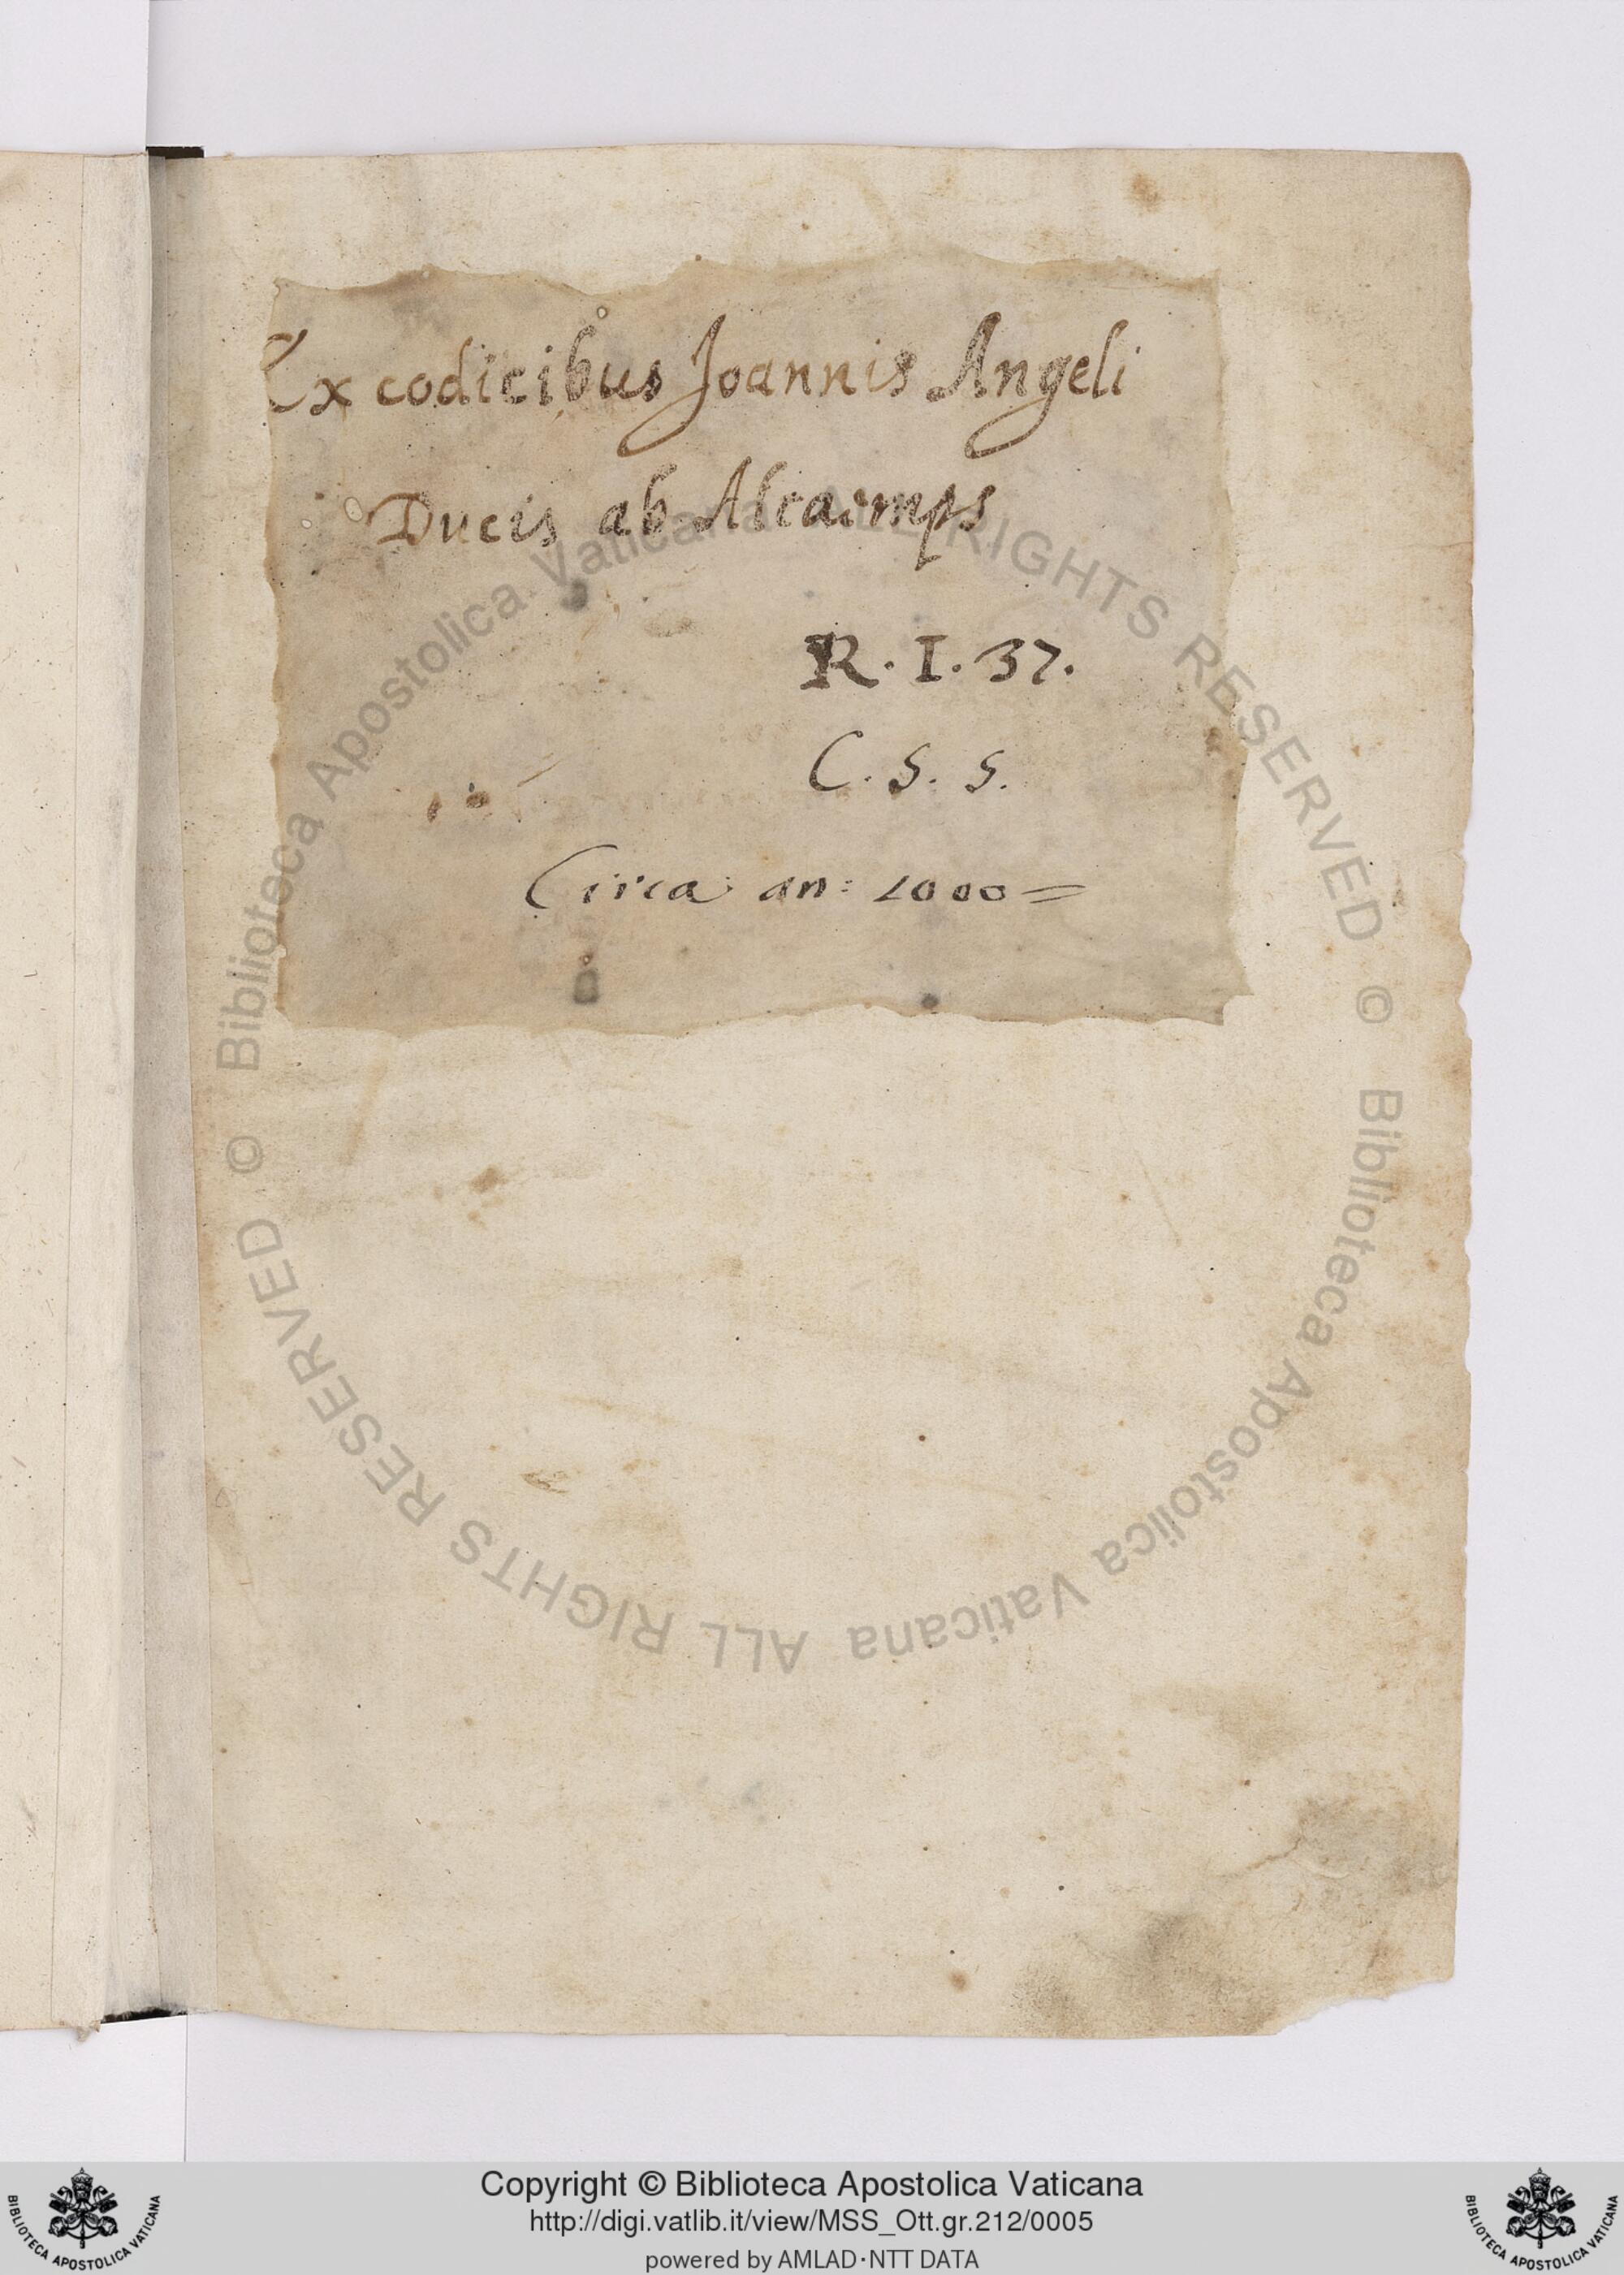 Ex codicibus Joannis Angeli
Ducis ab Altaemps
R. I. 37.
C. S. S.
Circa an: 1000 =
© Biblioteca Apostolica Vaticana ALL RIGHTS RESERVED
© Biblioteca Apostolica Vaticana ALL RIGHTS RESERVED
Copyright © Biblioteca Apostolica Vaticana
http://digi.vatlib.it/view/MSS_Ott.gr.212/0005
powered by AMLAD·NTT DATA
BIBLIOTECA APOSTOLICA VATICANA
BIBLIOTECA APOSTOLICA VATICANA